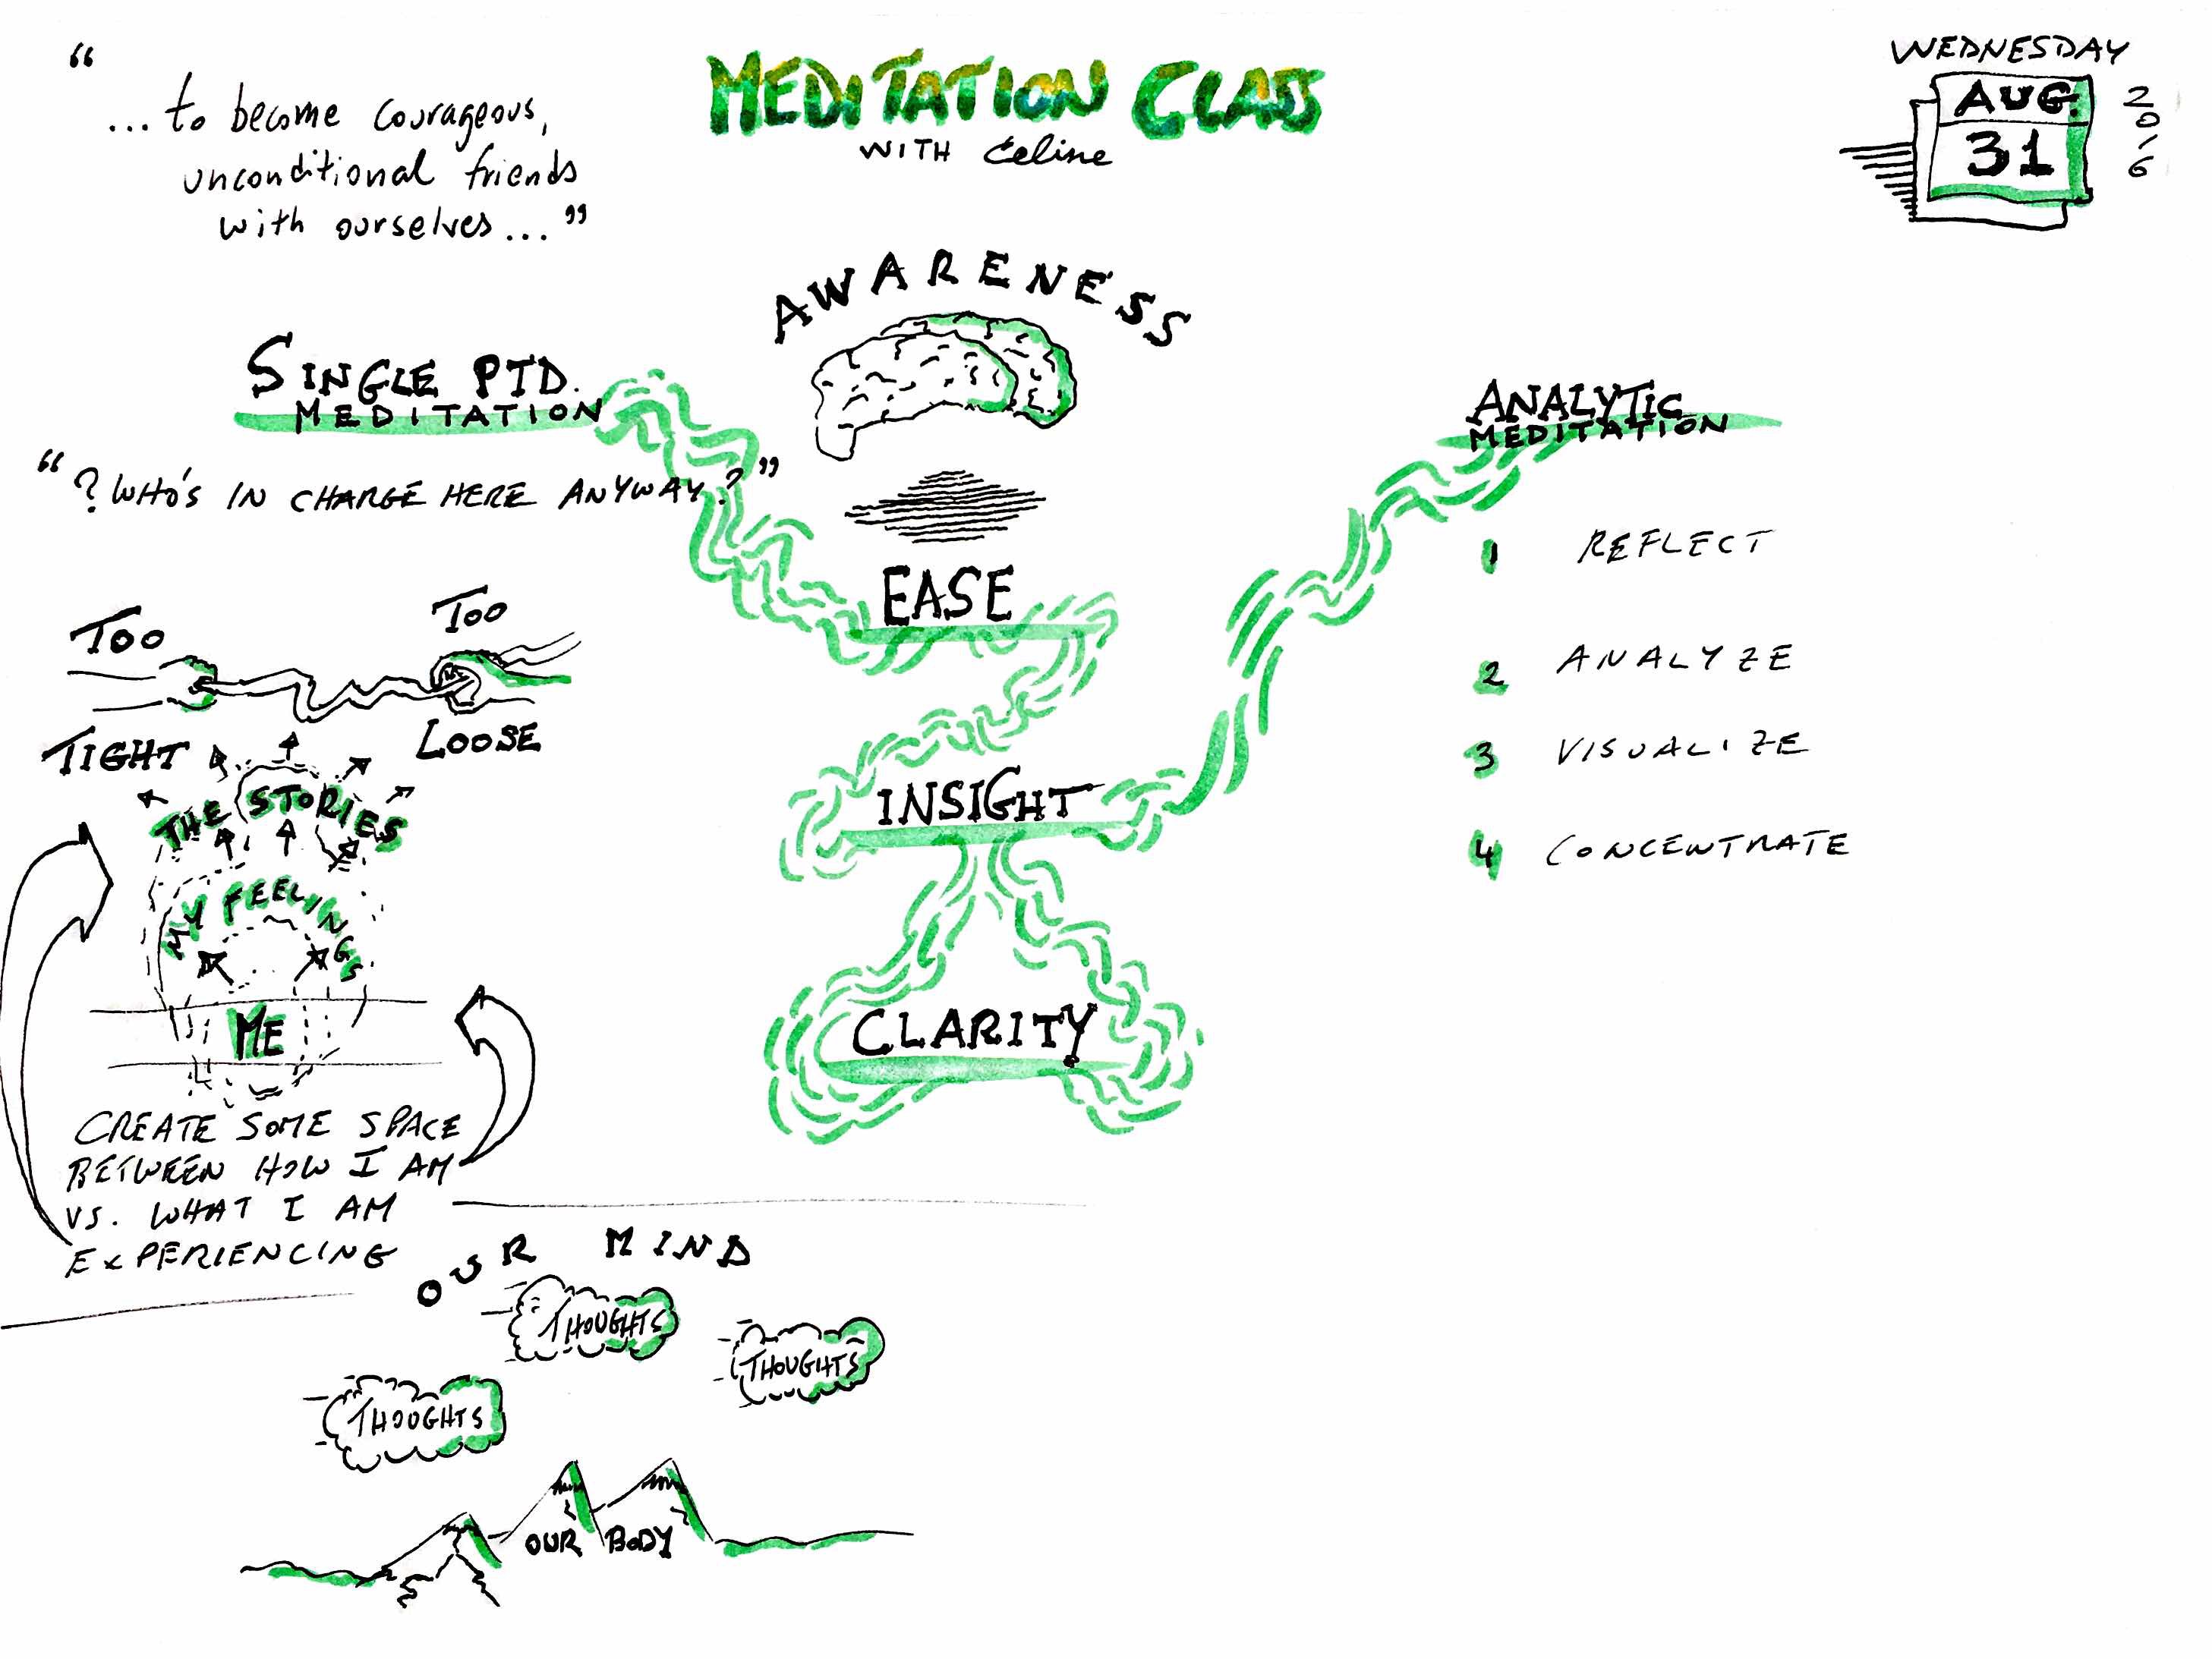 “
... to become courageous,
unconditional friends
with ourselves... ”
MEDITATION CLASS
WITH Celine
WEDNESDAY
AUG.
31
2016
AWARENESS
SINGLE PTD.
MEDITATION
“ ? WHO'S IN CHARGE HERE ANYWAY? ”
EASE
INSIGHT
CLARITY
ANALYTIC
MEDITATION
1 REFLECT
2 ANALYZE
3 VISUALIZE
4 CONCENTRATE
TOO
TIGHT
TOO
LOOSE
THE STORIES
MY FEELINGS
ME
CREATE SOME SPACE
BETWEEN HOW I AM
VS. WHAT I AM
EXPERIENCING
OUR MIND
THOUGHTS
THOUGHTS
THOUGHTS
OUR BODY